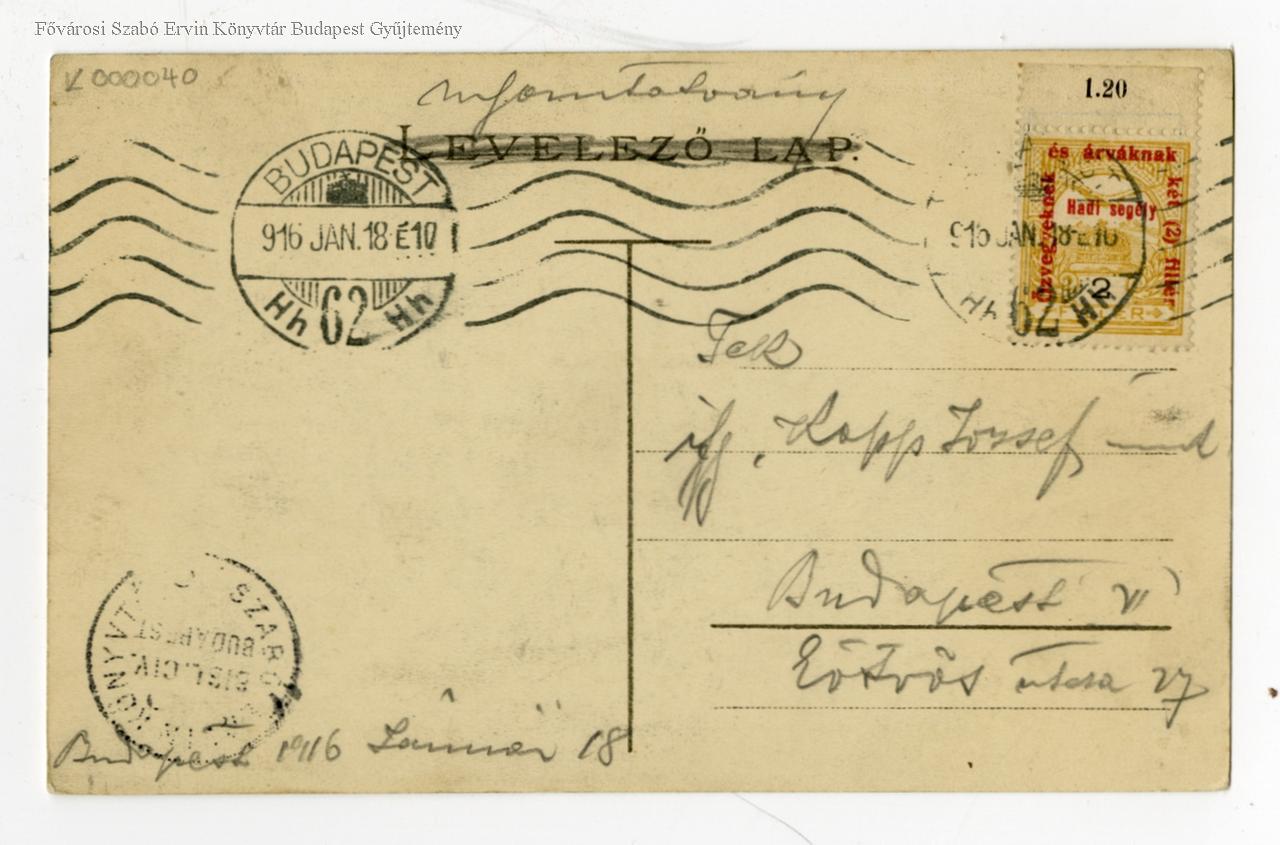 Fővárosi Szabó Ervin Könyvtár Budapest Gyűjtemény
V000040
nyomtatvány
LEVELEZŐ LAP.
1.20
Özvegyeknek és árváknak két (2) fillér
Hadi segély
2
FILLÉR
BUDAPEST
916 JAN.18 É10
Hh 62 Hh
916 JAN.18-É10
Hh 62 Hh
Tek
ifj. Kopp József
Budapest VI
Eötvös utcza 27
BUDAPEST
Budapest 1916 Január 18